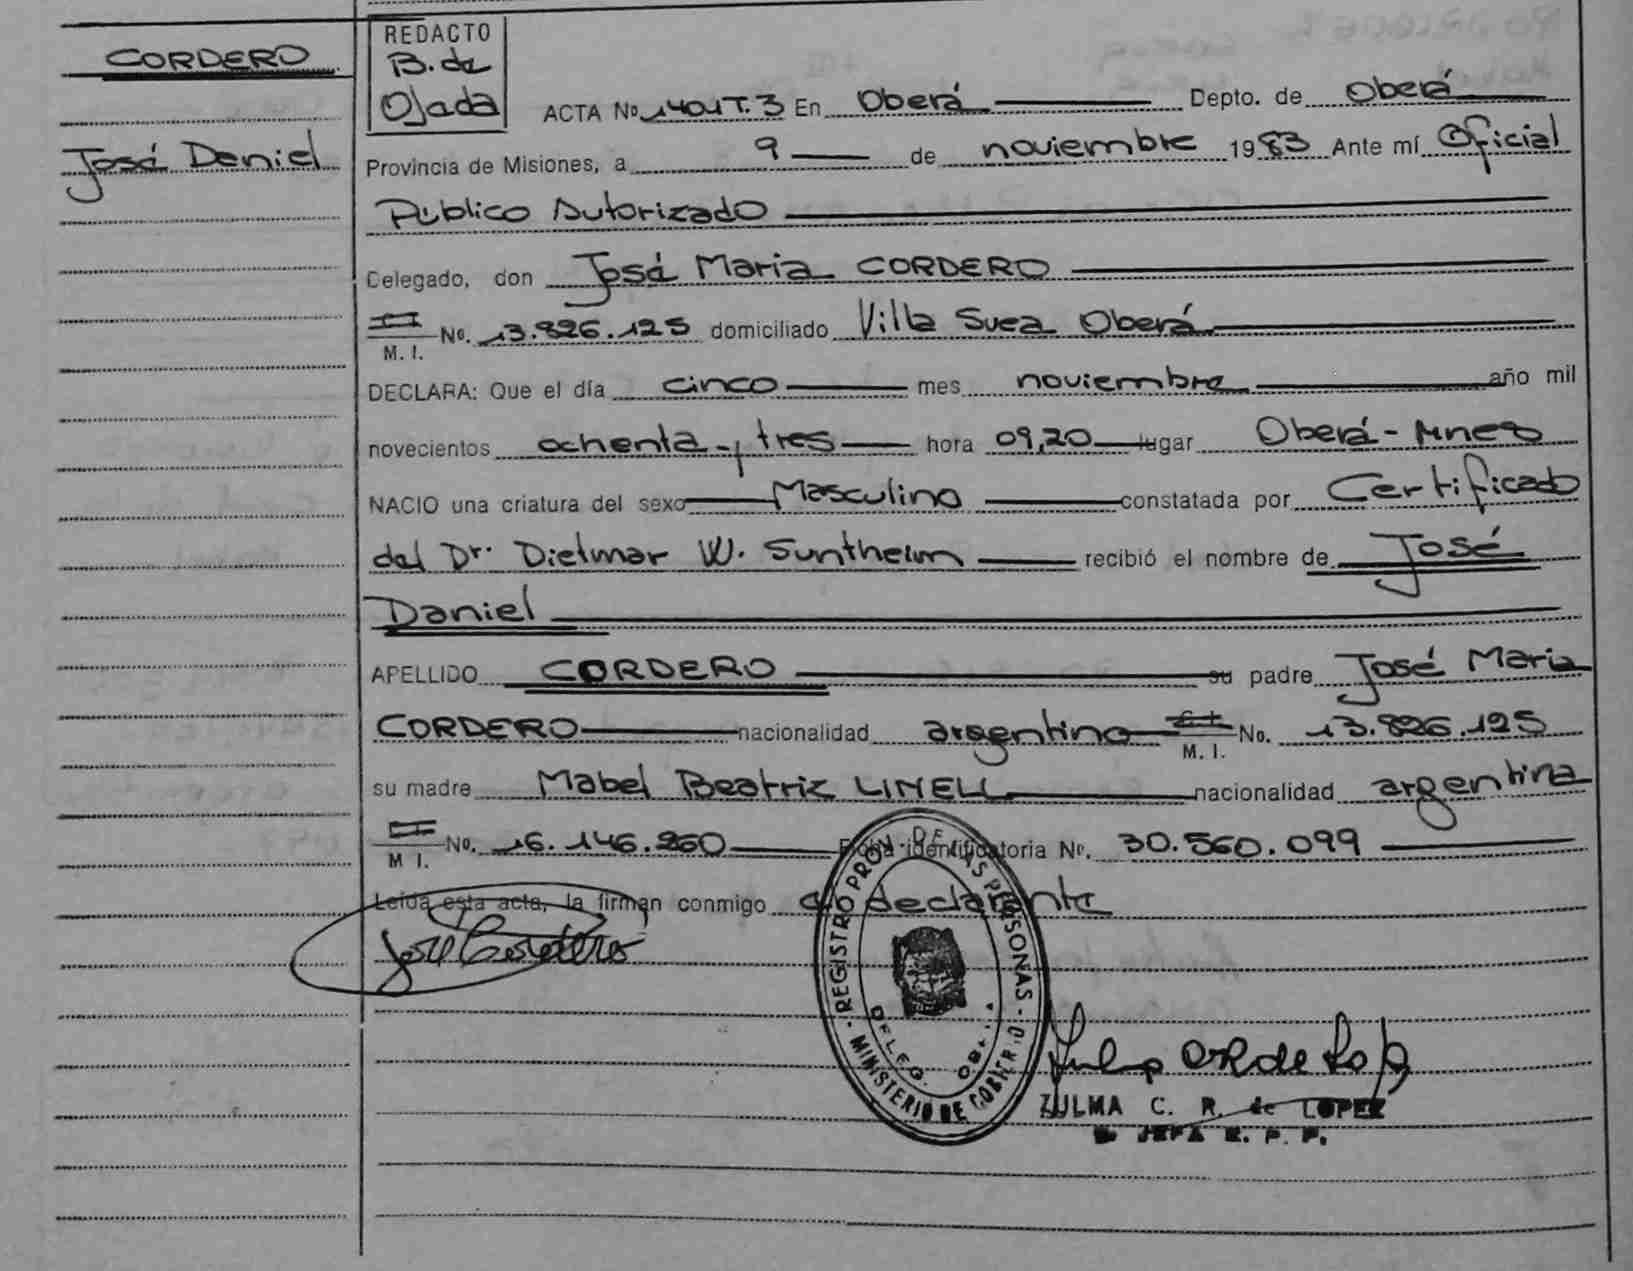 CORDERO
José Daniel
REDACTO
B. de
Ojada
ACTA No 1401 T. 3 En Oberá Depto. de Oberá
Provincia de Misiones, a 9 de noviembre 1983 Ante mí Oficial
Público Autorizado
Delegado, don José Maria CORDERO
M. I. No. 13.826.125 domiciliado Villa Svea Oberá
DECLARA: Que el día cinco mes noviembre año mil
novecientos ochenta y tres hora 09,20 lugar Oberá - Mnes
NACIO una criatura del sexo Masculino constatada por Certificado
del Dr. Dietmar W. Suntheim recibió el nombre de José
Daniel
APELLIDO CORDERO su padre José Maria
CORDERO nacionalidad argentino M. I. No. 13.826.125
su madre Mabel Beatriz LINELL nacionalidad argentina
M I. No. 16.146.260 Ficha identificatoria Nº. 30.560.099
Leída esta acta, la firman conmigo declarante
José Cordero
REGISTRO PROV. DE LAS PERSONAS - MINISTERIO DE GOBIERNO
DELEG.
ZULMA C. R. de LOPEZ
JEFA R. P. P.